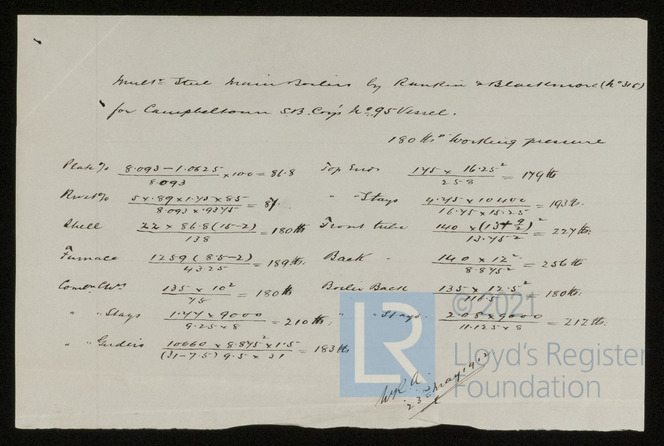 Mult. Steel Main Boilers by Rankin & Blackmore (No 315)
for Campbeltown S.B. Coy's No 95 Vessel.
180 lbs Working pressure
Plate % (8.093 - 1.0625)/8.093 x 100 = 86.8
Rivet % (5 x .89 x 1.75 x 85)/(8.093 x .9375) = 87.
Shell (22 x 86.8 (15-2))/138 = 180 lb
Furnace (1259 (8.5-2))/43.25 = 189 lb
Comn Chrs (135 x 10²)/75 = 180 lb
" " Stays (1.77 x 9000)/(9.25 x 8) = 210 lb.
" " Girders (10660 x 8.875² x 1.5)/((31-7.5) 9.5 x 31) = 183 lb
Top Ends (175 x 16.25²)/258 = 179 lb
" Stays (4.75 x 10400)/(16.75 x 15.25) = 193 lb.
Front tube = 227 lb.
Back " (140 x 12²)/8.875² = 256 lb
Boiler Back (135 x 12.5²)/116.5 = 180 lb.
" " Stays (2.08 x 9000)/(11.125 x 8) = 212 lb.
23 May 1912
LR
© 2021
Lloyd's Register
Foundation